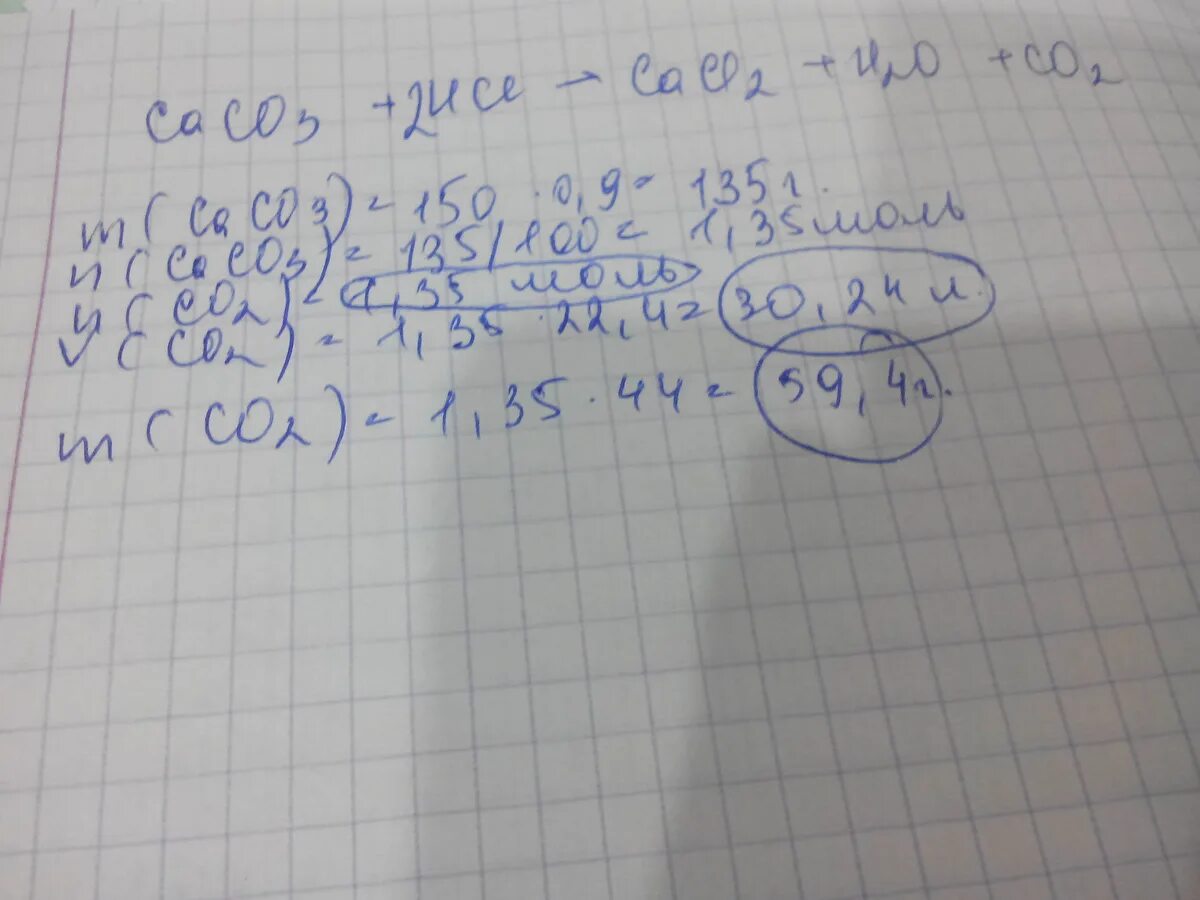 CaCO3 + 2HCl → CaCl2 + H2O + CO2
m(CaCO3) = 150 · 0,9 = 135г.
n(CaCO3) = 135/100 = 1,35 моль
n(CO2) = 1,35 моль
V(CO2) = 1,35 · 22,4 = 30,24 л.
m(CO2) = 1,35 · 44 = 59,4г.